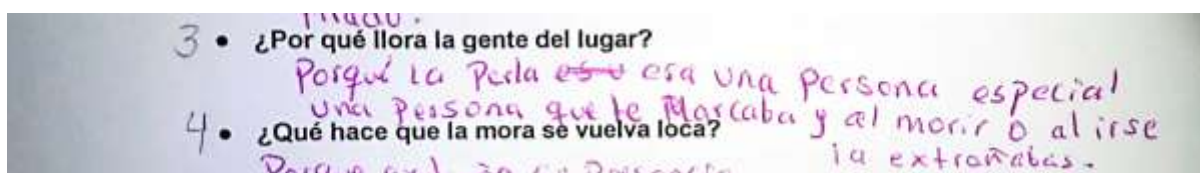 3 • ¿Por qué llora la gente del lugar?
Porqué la Perla era una persona especial
una persona que te Marcaba y al morir o al irse
la extrañabas.
4 • ¿Qué hace que la mora se vuelva loca?